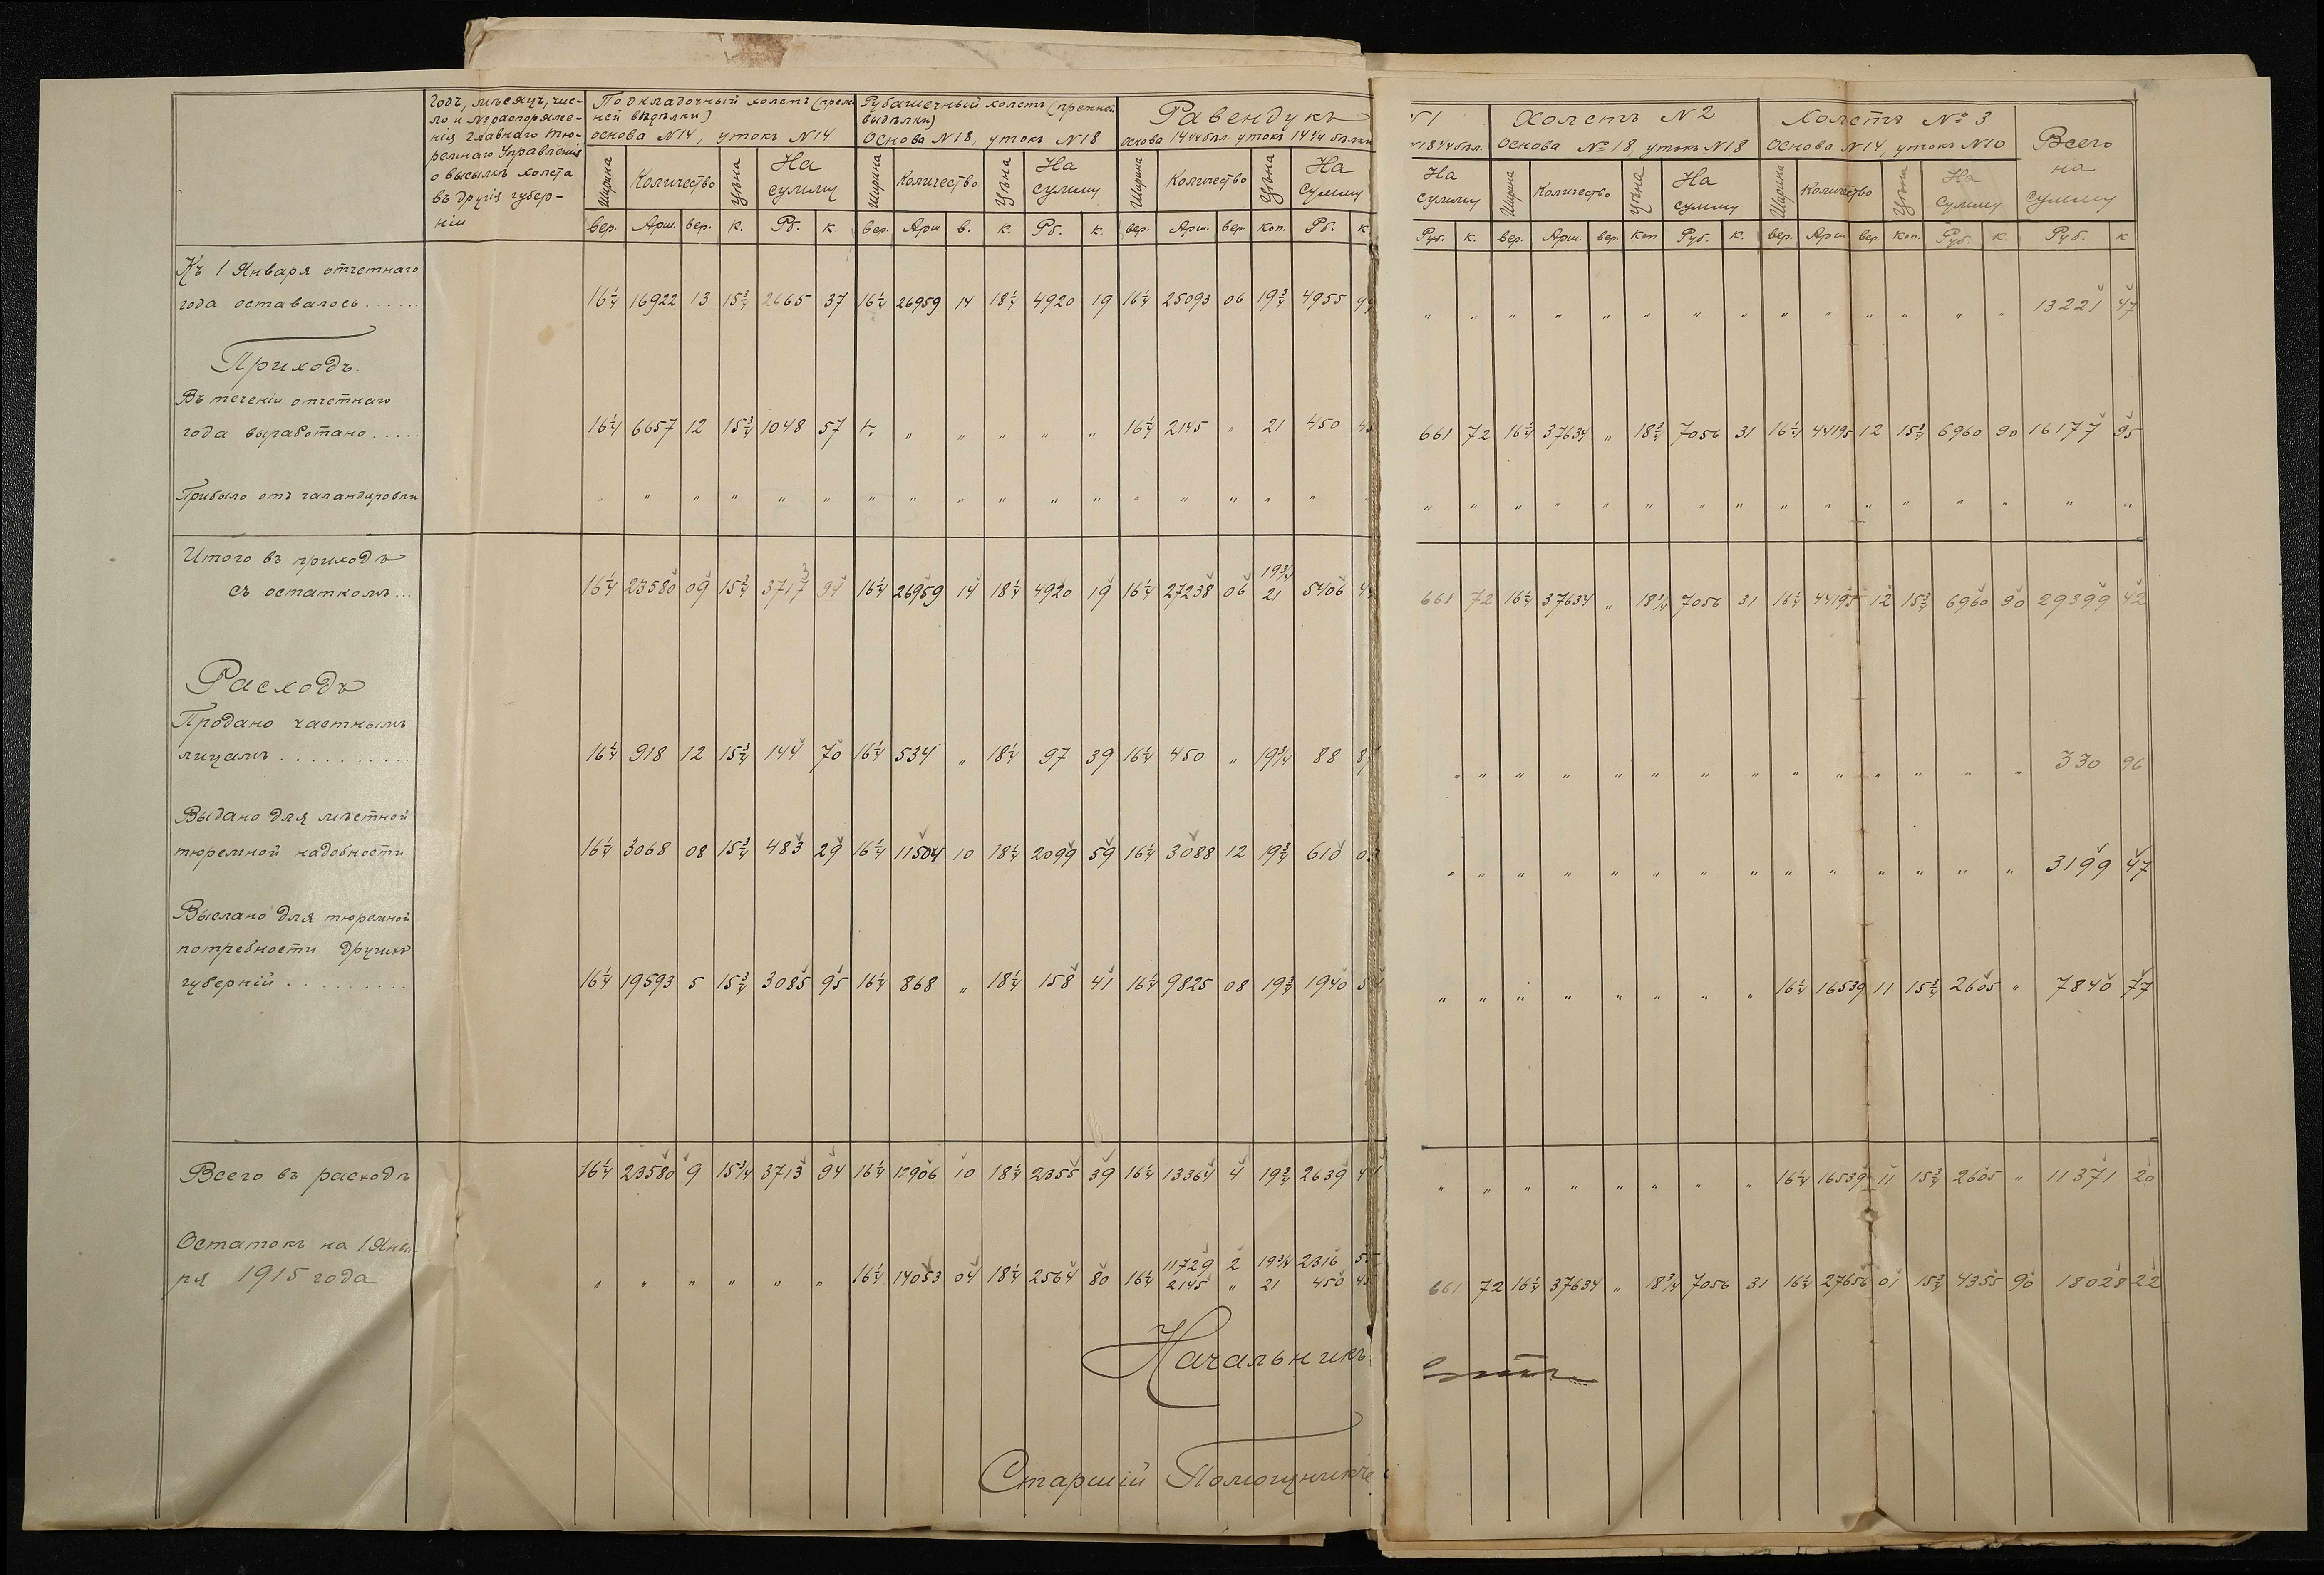 Годъ, мѣсяцъ, чис-
ло и № распоряже-
нія Главнаго Тю-
ремнаго Управленія
о высылкѣ холста
въ другія губер-
ніи
Подкладочный холстъ (преж
ней выдѣлки)
основа N14, утокъ N14
Рубашечный холстъ (прежней
выдѣлки)
Основа N18, утокъ N18
Равендукъ
N1
Холстъ N2
Основа № 18, утокъ N18
Холстъ № 3
Основа N14, утокъ N10
Всего
на
сумму
Ширина Количество Цѣна На сумму Ширина Количество Цѣна На сумму Ширина Количество Цѣна На сумму
На сумму Ширина Количество Цѣна На сумму Ширина Количество Цѣна На сумму
вер. Арш. вер. к. Рб. к. вер. Арш в. к. Рб. к. вер. Арш. вер. коп. Рб. к
Руб. к. вер. Арш. вер. коп Руб. к. вер. Арш вер. коп. Руб. к. Руб. к
Къ 1 Января отчетнаго
года оставалось......
16¼ 16922 13 15¾ 2665 37 16¼ 26959 14 18¼ 4920 19 16¼ 25093 06 19¾ 4955
" " " " " " " " " " " " " " 13221 47
Приходъ.
Въ теченіи отчетнаго
года выработано.....
16¼ 6657 12 15¾ 1048 57 " " " " " " 16¼ 2145 " 21 450
661 72 16¼ 37634 " 18¾ 7056 31 16¼ 44195 12 15¾ 6960 90 16177 95
Прибыло отъ каландировки
" " " " " " " " " " " " " " " " "
" " " " " " " " " " " " " " " "
Итого въ приходѣ
съ остаткомъ...
16¼ 23580 09 15¾ 3713 94 16¼ 26959 14 18¼ 4920 19 16¼ 27238 06 19¾ 21 5406
661 72 16¼ 37634 " 18¾ 7056 31 16¼ 44195 12 15¾ 6960 90 29399 42
Расходъ
Продано частнымъ
лицамъ..........
16¼ 918 12 15¾ 144 70 16¼ 534 " 18¼ 97 39 16¼ 450 " 19¾ 88
" " " " " " " " " " " " " " 330 96
Выдано для мѣстной
тюремной надобности
16¼ 3068 08 15¾ 483 29 16¼ 11504 10 18¼ 2099 59 16¼ 3088 12 19¾ 610
" " " " " " " " " " " " " " 3199 47
Выслано для тюремной
потребности другихъ
губерній.........
16¼ 19593 5 15¾ 3085 95 16¼ 868 " 18¼ 158 41 16¼ 9825 08 19¾ 1940
" " " " " " " " 16¼ 16539 11 15¾ 2605 " 7840 77
Всего въ расходѣ
16¼ 23580 9 15¾ 3713 94 16¼ 12906 10 18¼ 2355 39 16¼ 13364 4 19¾ 2639
" " " " " " " " 16¼ 16539 11 15¾ 2605 " 11371 20
Остатокъ на 1 Янва-
ря 1915 года
11729 2 19¾ 2316
" " " " " " 16¼ 14053 04 18¼ 2564 80 16¼ 2145 " 21 450
661 72 16¼ 37634 " 18¾ 7056 31 16¼ 27656 01 15¾ 4355 90 18028 22
Начальникъ
Старшій Помощникъ